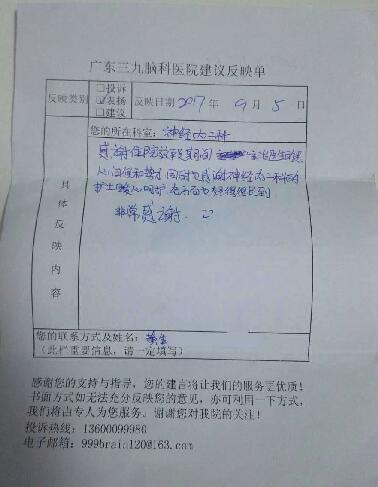 广东三九脑科医院建议反映单
反映类别
□投诉
☑表扬
□建议
反映日期 2017年 9月 5日
您的所在科室：神经内二科
具体反映内容
感谢住院效果期间 主治医生
人 同时也感谢神经内二科的
护士 照顾得很周到
非常感谢.
您的联系方式及姓名：
(此栏重要信息，请一定填写)
感谢您的支持与指导，您的建言将让我们的服务更优质！
书面方式如无法充分反映您的意见，亦可利用一下方式，
我们将由专人为您服务。谢谢您对我院的关注！
投诉热线：13600099980
电子邮箱：999brain120@163.com